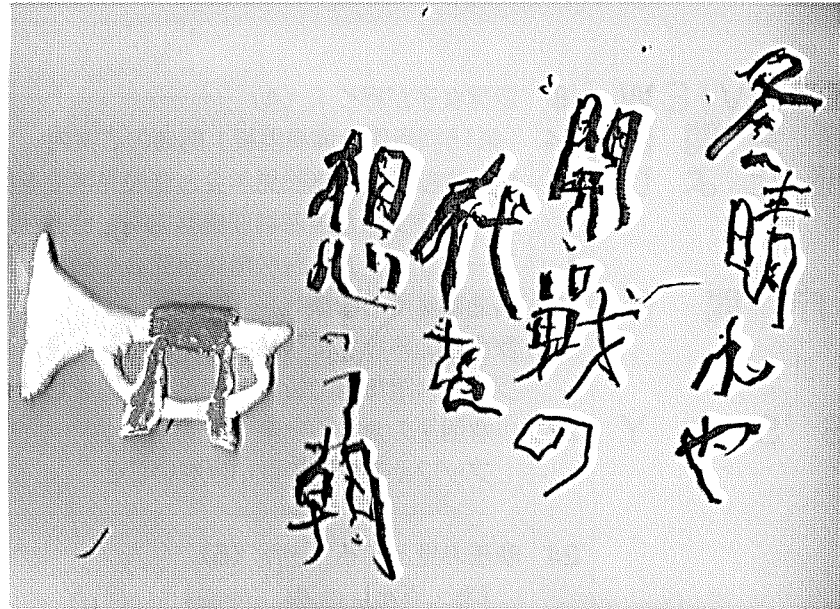 冬晴れや
開戦の
秋を
想う朝